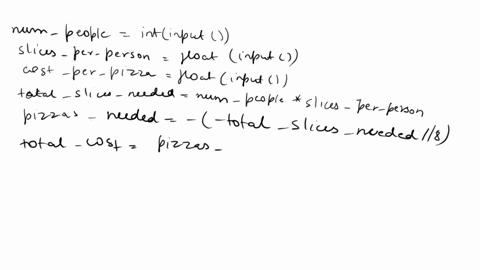 num_people = int(input())
slices_per_person = float (input())
cost_per_pizza = float(input())
total_slices_needed = num_people * slices_per_person
pizzas_needed = -(-total_slices_needed//8)
total_cost = pizzas_